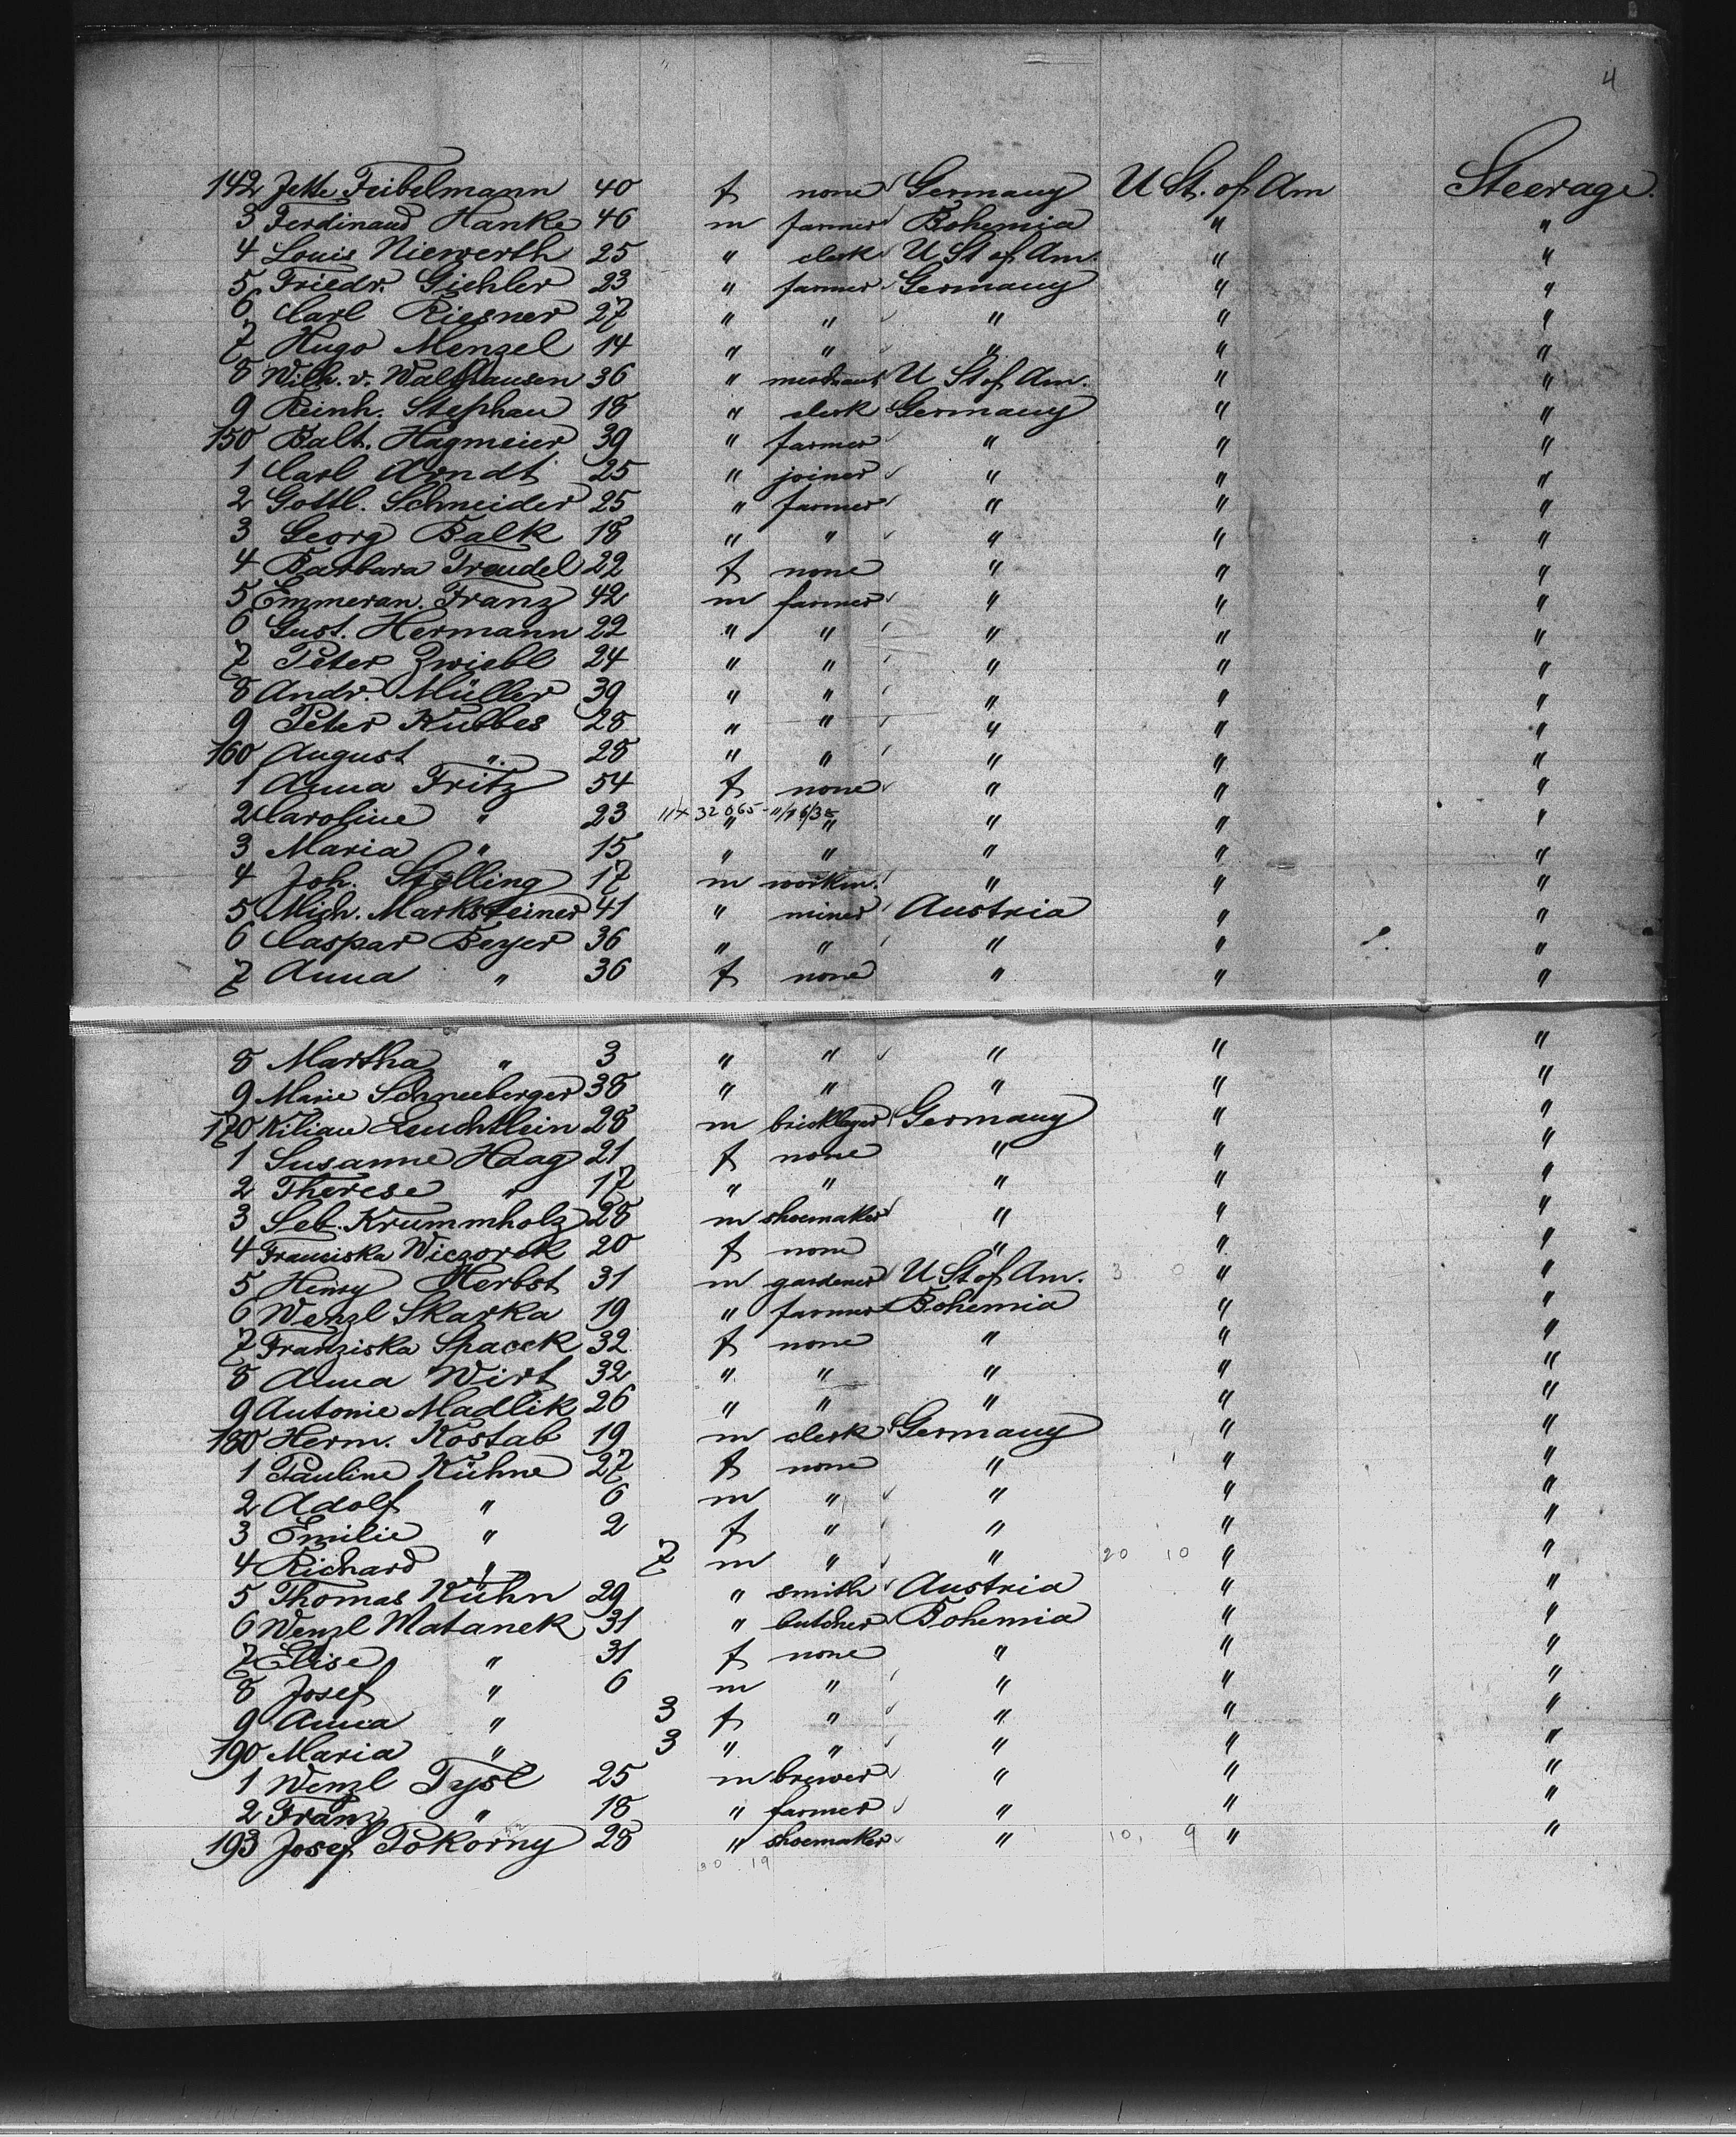 4
142 Jette Feibelmann 40 f none Germany U St. of Am Steerage.
3 Ferdinand Hanke 46 m farmer Bohemia " "
4 Louis Niewerth 25 " clerk U St of Am. " "
5 Friedr. Gichler 23 " farmer Germany " "
6 Carl Riesner 27 " " " " "
7 Hugo Menzel 14 " " " " "
8 Wilh. v. Walthausen 36 " merchant U St of Am. " "
9 Reinh. Stephan 18 " clerk Germany " "
150 Balt. Hagmeier 39 " farmer " " "
1 Carl Arndt 25 " joiner " " "
2 Gottl. Schneider 25 " farmer " " "
3 Georg Balk 18 " " " " "
4 Barbara Treudel 22 f none " " "
5 Emmeran Franz 42 m farmer " " "
6 Gust. Hermann 22 " " " " "
7 Peter Zwiebl 24 " " " " "
8 Andr. Müller 39 " " " " "
9 Peter Kubbes 28 " " " " "
160 August " 28 " " " " "
1 Anna Fritz 54 f none " " "
2 Caroline " 23 " " " " "
3 Maria " 15 " " " " "
4 Joh. Stölling 17 m workm. " " "
5 Mich. Marksteiner 41 " miner Austria " "
6 Caspar Beyer 36 " " " " "
7 Anna " 36 f none " " "
8 Martha " 3 " " " " "
9 Marie Schneeberger 38 " " " " "
170 Kilian Leuchtlein 28 m bricklayer Germany " "
1 Susanne Haag 21 f none " " "
2 Therese " 17 " " " " "
3 Seb. Krummholz 28 m shoemaker " " "
4 Franciska Wiczorek 20 f none " " "
5 Henry Herbst 31 m gardener U St of Am. 3 0 " "
6 Wenzl Skarka 19 " farmer Bohemia " "
7 Franziska Spacek 32 f none " " "
8 Anna Wirt 32 " " " " "
9 Antonie Madlik 26 " " " " "
180 Herm. Kostab 19 m clerk Germany " "
1 Pauline Kühne 27 f none " " "
2 Adolf " 6 m " " " "
3 Emilie " 2 f " " " "
4 Richard " 7 m " " 20 10 " "
5 Thomas Kühn 29 " smith Austria " "
6 Wenzl Matanek 31 " butcher Bohemia " "
7 Elise " 31 f none " " "
8 Josef " 6 m " " " "
9 Anna " 3 f " " " "
190 Maria " 3 " " " " "
1 Wenzl Tysl 25 m brewer " " "
2 Franz " 18 " farmer " " "
193 Josef Pokorny 28 " shoemaker " 10, 9 " "
30 19